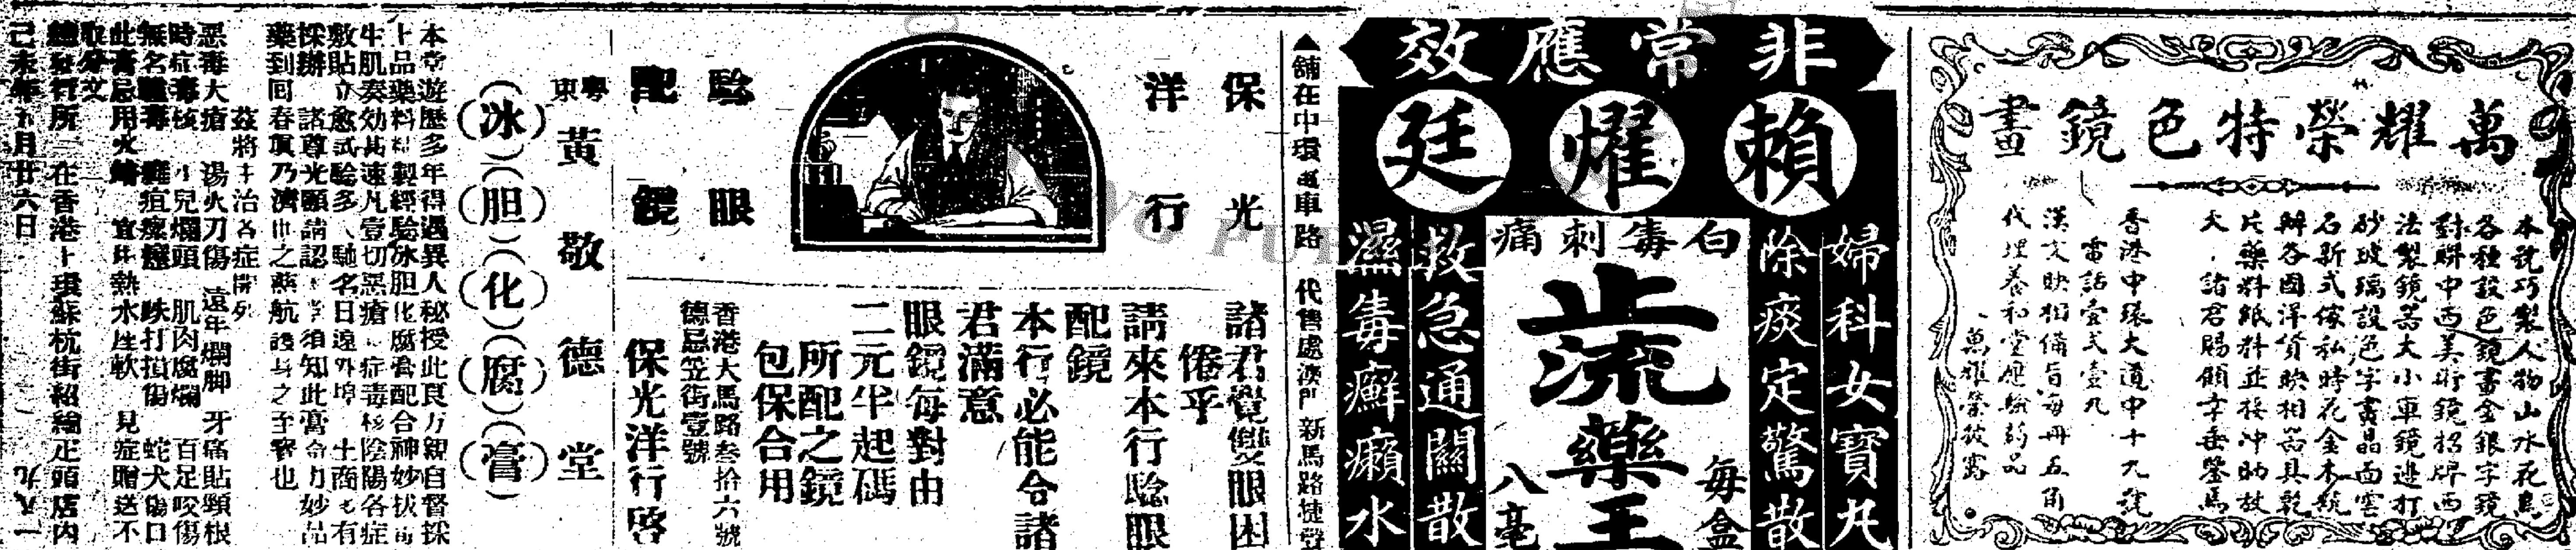 萬耀榮特色鏡畫
本號巧製人物山水花鳥
各種設色鏡畫金銀字鏡
對聯中西美術鏡招牌西
法製鏡器大小車鏡邊打
砂玻璃設色字畫晶面雲
石新式傢私時花金木鏡
辦各國洋貨映相器具乾
片藥料紙料並接沖晒放
大諸君賜顧幸垂鑒焉
香港中環大道中十九號
電話壹弍壹九
萬耀榮披露
漢文映相俻旨每冊五角
代理養和堂應驗葯品
非常應效
賴耀廷
婦科女寶丸
除痰定驚散
白毒刺痛
止流藥王
每盒
八毫
救急通關散
濕毒癬癩水
▲舖在中環電車路 代售處澳門新馬路捷登
保光
洋行
驗眼
配鏡
諸君覺雙眼困
倦乎
請來本行驗眼
配鏡
本行必能令諸
君滿意
眼鏡每對由
二元半起碼
所配之鏡
包保合用
香港大馬路叁拾六號
德忌笠街壹號
保光洋行啓
粵東
黃敬德堂
(冰)(胆)(化)(腐)(膏)
本堂遊歷多年得遇異人秘授此良方親自督採
上品藥料精製經驗冰胆化腐膏配合神妙拔毒
生肌奏效甚速凡壹切惡瘡症毒核陰陽各症
敷貼立愈試驗多人馳名日遠外埠士商有
採辦諸尊光顧請認須知此膏妙品
藥到回春眞乃濟世之慈航護身之至寶也
茲將主治各症開列
惡毒大瘡 湯火刀傷 遠年爛脚 牙痛貼頸根
時症毒核 小兒爛頭 肌肉腐爛 百足咬傷
無名腫毒 癰疽瘰癧 跌打損傷 蛇犬傷口
此膏忌用火燒 宜用熱水燙軟 見症贈送不
取分文
總發行所在香港上環蘇杭街紹綸疋頭店內
己未年五月廿六日